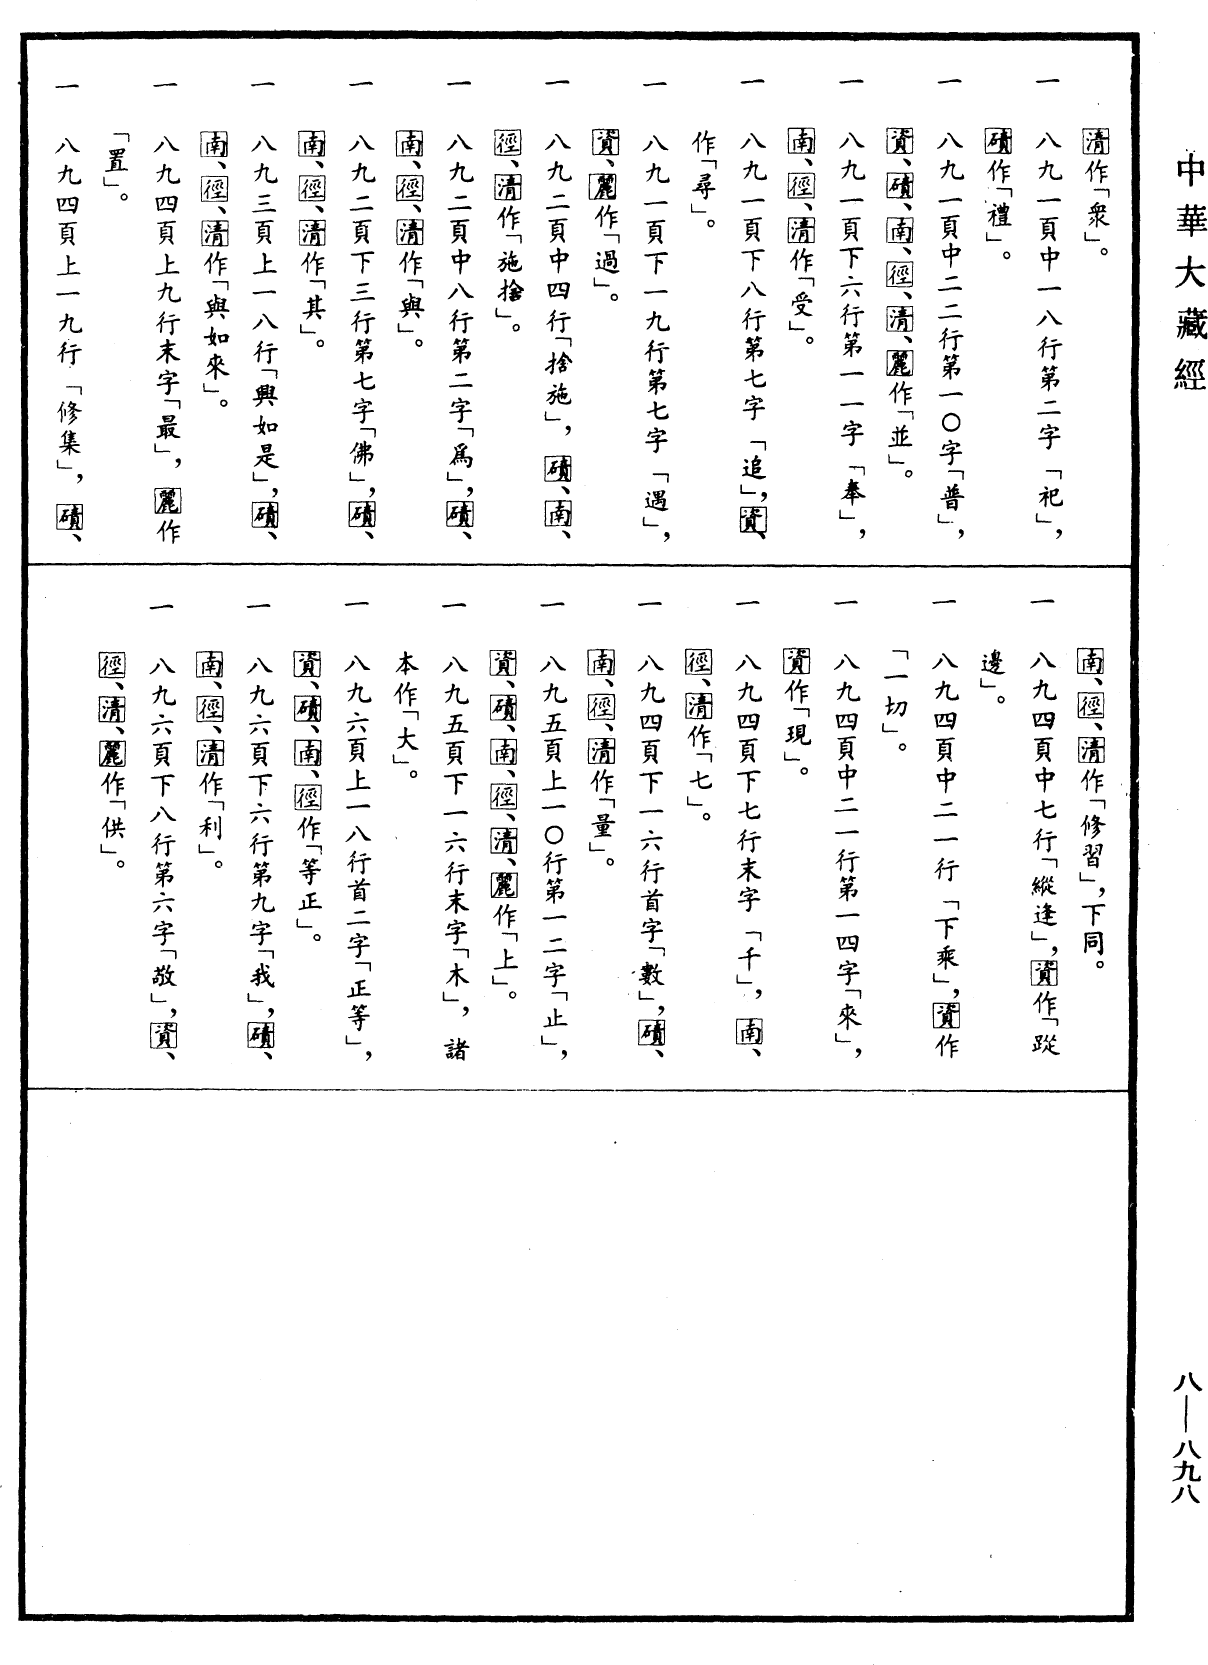 中華大藏經
清作「衆」。
一　八九一頁中一八行第二字「祀」，
磧作「禮」。
一　八九一頁中二二行第一〇字「普」，
資、磧、南、徑、清、麗作「並」。
一　八九一頁下六行第一一字「奉」，
南、徑、清作「受」。
一　八九一頁下八行第七字「追」，資、
作「尋」。
一　八九一頁下一九行第七字「遇」，
資、麗作「過」。
一　八九二頁中四行「捨施」，磧、南、
徑、清作「施捨」。
一　八九二頁中八行第二字「爲」，磧、
南、徑、清作「與」。
一　八九二頁下三行第七字「佛」，磧、
南、徑、清作「其」。
一　八九三頁上一八行「興如是」，磧、
南、徑、清作「與如來」。
一　八九四頁上九行末字「最」，麗作
「置」。
一　八九四頁上一九行「修集」，磧、
南、徑、清作「修習」，下同。
一　八九四頁中七行「縱逢」，資作「蹤
邊」。
一　八九四頁中二一行「下乘」，資作
「一切」。
一　八九四頁中二一行第一四字「來」，
資作「現」。
一　八九四頁下七行末字「千」，南、
徑、清作「七」。
一　八九四頁下一六行首字「數」，磧、
南、徑、清作「量」。
一　八九五頁上一〇行第一二字「止」，
資、磧、南、徑、清、麗作「上」。
一　八九五頁下一六行末字「木」，諸
本作「大」。
一　八九六頁上一八行首二字「正等」，
資、磧、南、徑作「等正」。
一　八九六頁下六行第九字「我」，磧、
南、徑、清作「利」。
一　八九六頁下八行第六字「敬」，資、
徑、清、麗作「供」。
八—八九八